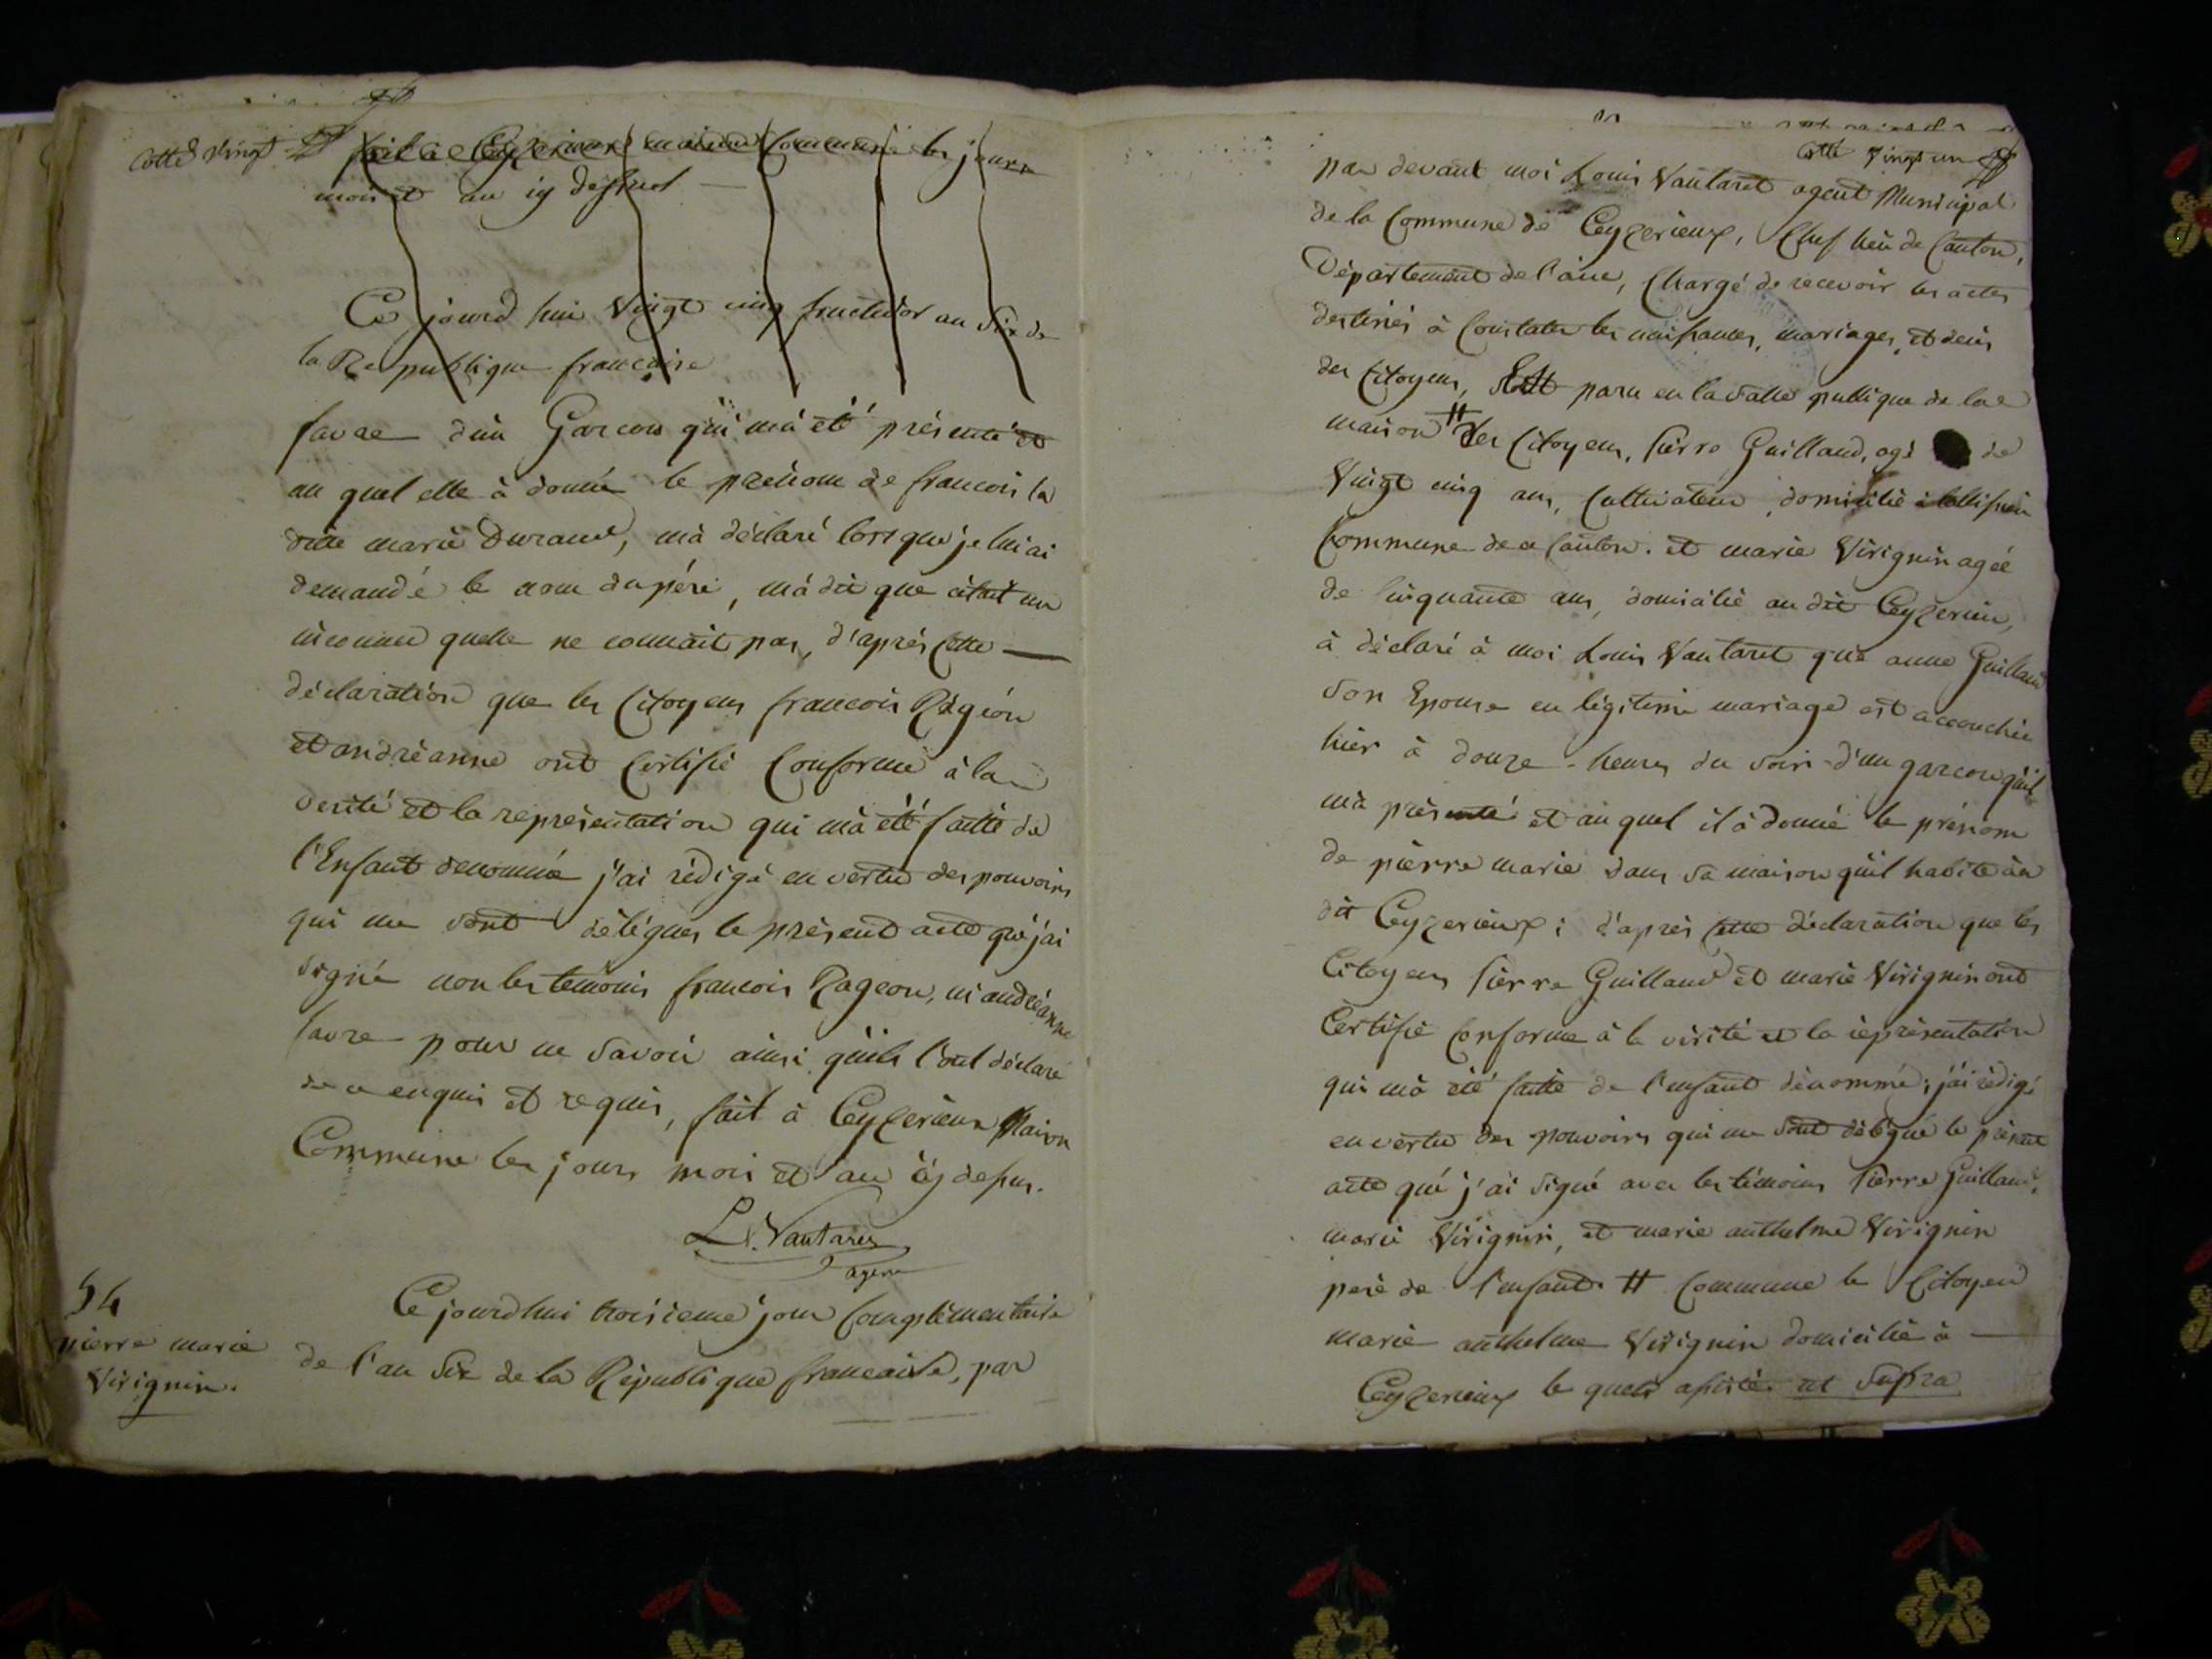 Cotté vingt
fait à Ceyzerieux maison Commune les jours
mois et an cy dessus
Ce jourd hui vingt cinq fructidor an Six de
la Republique francaise
favre d'un Garcon qui m'a été présenté et
au quel elle à donné le prénom de francois la
dite marie Durand, m'a déclaré lorsque je lui ai
demandé le nom du pére, m'a dit que c'étoit un
inconnu quelle ne connait pas, d'aprés cette
déclaration que les Citoyens francois Rageon
et andréanne ont Certifié Conforme à la
verité et la représentation qui m'a été faitte de
l'Enfant denommé j'ai rédigé en vertu des pouvoirs
qui me sont délégues le présent acte que j'ai
signé non les temoins francois Rageon, ni andréanne
favre pour ne savoir ainsi qu'ils l'ont déclaré
de ce enquis et requis, fait à Ceyzerieux Maison
Commune les jours mois et an cy dessus.
L. Vantaret
agent
54
pierre marie
Virignin.
Ce jourd hui troisieme jour Complémentaire
de l'an Six de la République francaise, par
Cotté vingt un
par devant moi Louis Vantaret agent Municipal
de la Commune de Ceyzerieux, Chef lieu de Canton,
Département de l'ain, Chargé de recevoir les actes
destinés à Constater les naissances, mariages, et décés
des Citoyens, Est paru en la salle publique de la
maison # Les Citoyens, Pierre Guilland, agé de
Vingt cinq ans, Cultivateur, domicilié à
Commune de ce Canton. et marie Virignin agée
de Cinquante ans, domicilié au dit Ceyzerieu,
à déclaré à moi Louis Vantaret que anne Guilland
son Epouse en légitime mariage est accouchée
hier à douze heures du soir d'un garcon qu'il
m'a présenté et au quel il à donné le prénom
de pierre marie dans sa maison qu'il habite au
dit Ceyzerieux; d'aprés cette déclaration que les
Citoyens Pierre Guilland et marie Virignin ont
Certifié Conforme à la vérité et la représentation
qui m'a été faitte de l'enfant dénommé; j'ai rédigé
en vertu des pouvoirs qui me sont délégué le présent
acte que j'ai signé avec les témoins Pierre Guilland,
marie Virignin, et marie anthelme Virignin
peré de l'enfant. # Commune le Citoyen
marie anthelme Virignin domicilié à
Ceyzerieux le quels assisté ut Supra